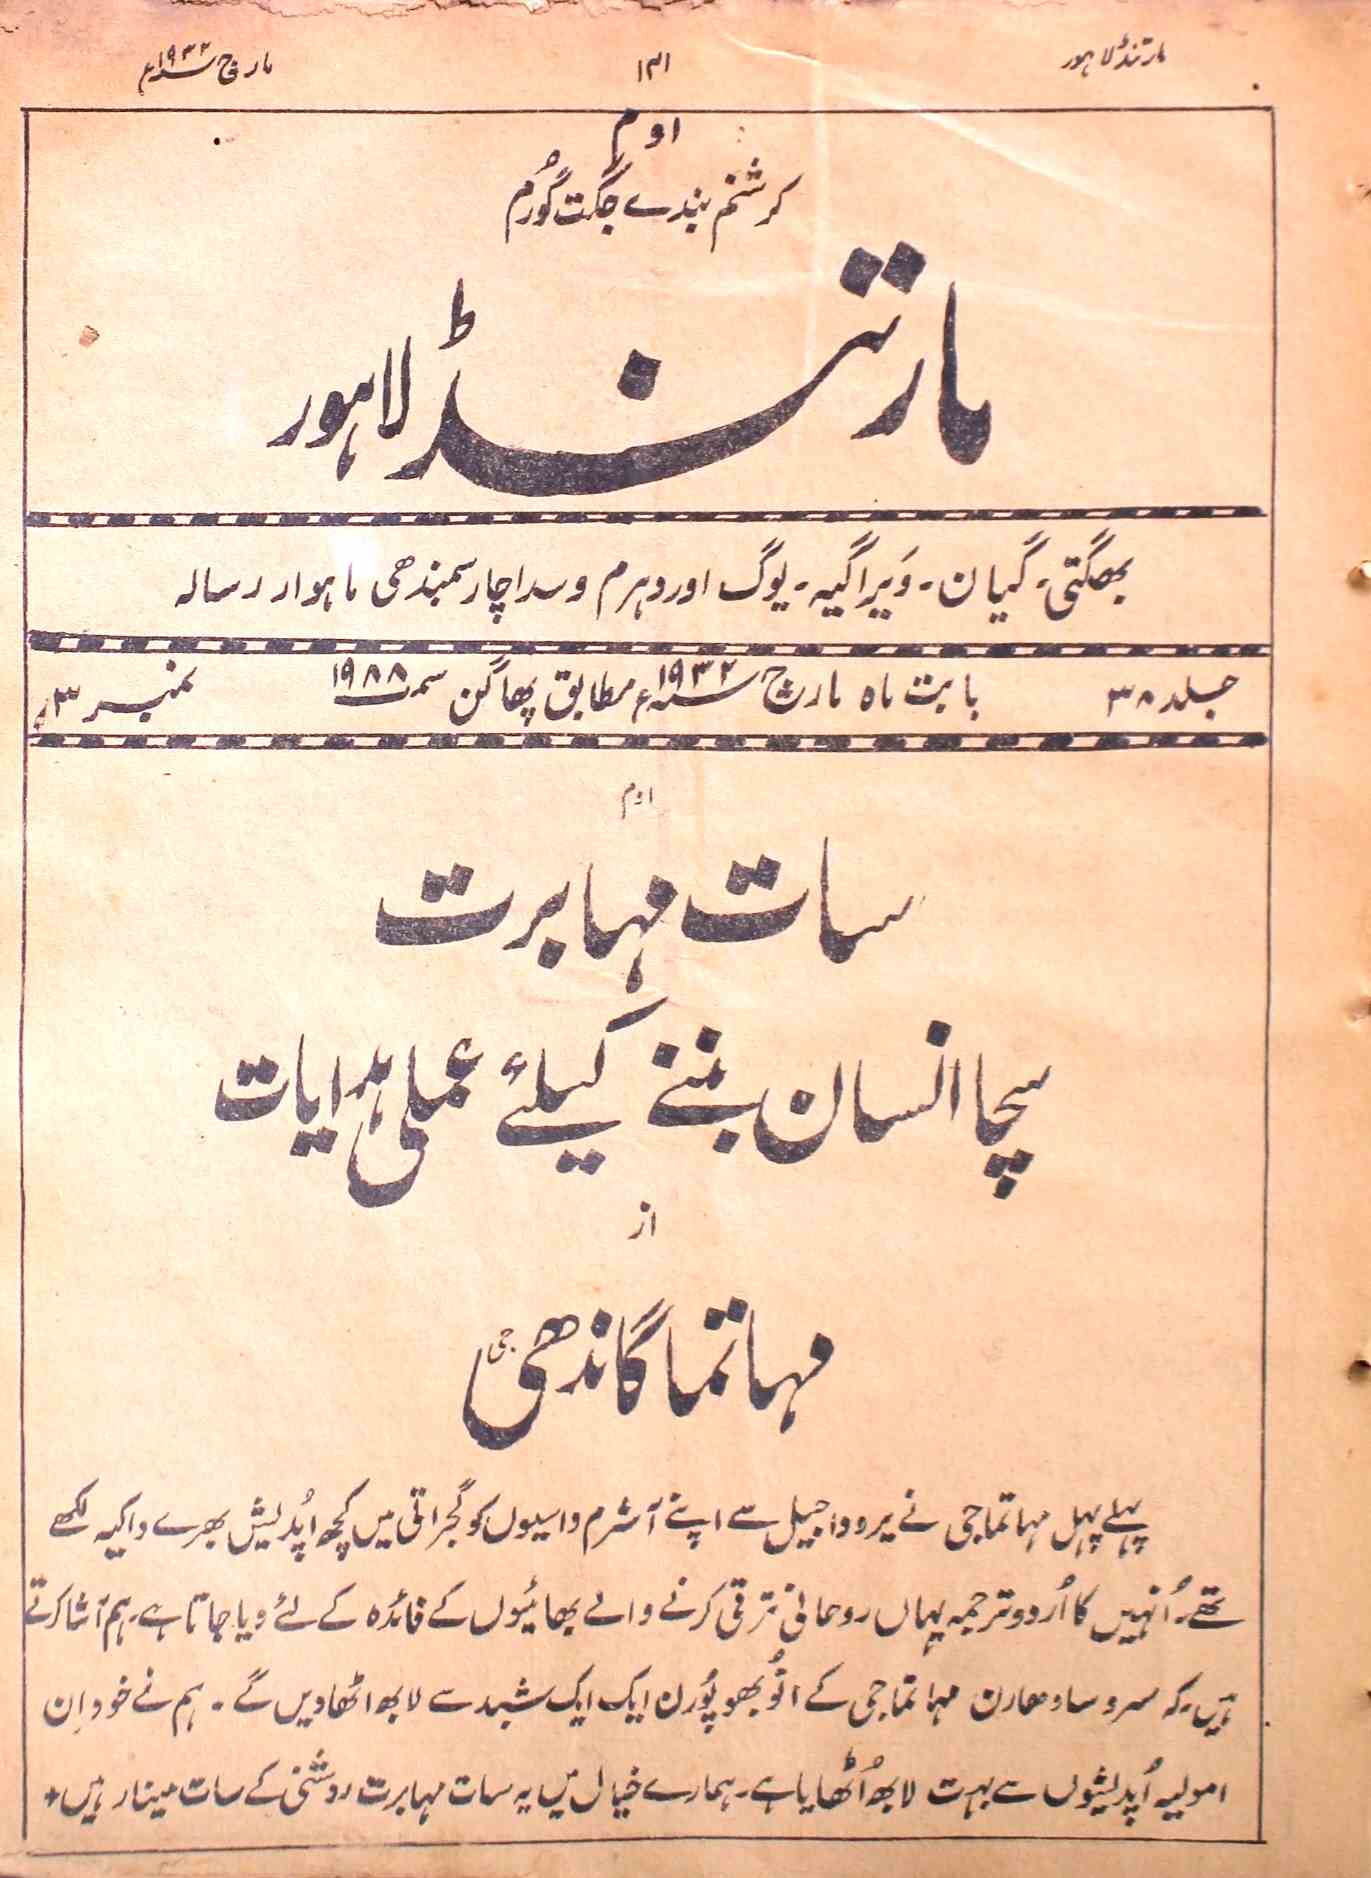 مارتنڈ لاہور
۱۳۱
مارچ سنہ ۱۹۳۲ء
اوم
کرشنم بندے جگت گورُم
مارتنڈ لاہور
بھگتی۔ گیان۔ وَیراگیہ۔ یوگ اور دہرم و سداچار سمبندھی ماہوار رسالہ
جلد ۳۸
بابت ماہ مارچ سنہ ۱۹۳۲ء مطابق پھاگن سمت ۱۹۸۸
نمبر ۳
اوم
سات مہابرت
سچا انسان بننے کیلئے عملی ہدایات
از
مہاتما گاندھی جی
پہلے پہل مہاتما جی نے یرودا جیل سے اپنے آشرم واسیوں کو گجراتی میں کچھ اُپدیش بھرے واکیہ لکھے
تھے۔ اُنہیں کا اُردو ترجمہ یہاں روحانی ترقی کرنے والے بھائیوں کے فائدہ کے لئے دیا جاتا ہے۔ ہم آشا کرتے
ہیں۔ کہ سروسادھارن مہاتما جی کے انُوبھو پُورن ایک ایک شبد سے لابھ اٹھاویں گے۔ ہم نے خود اِن
امولیہ اُپدیشوں سے بہت لابھ اُٹھایا ہے۔ ہمارے خیال میں یہ سات مہابرت روشنی کے سات مینار ہیں+